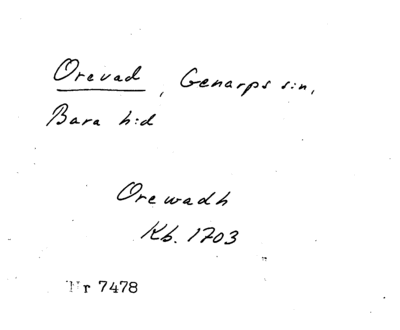 Orevad, Genarps s:n,
Bara h:d
Orewadh
Kb. 1703
Nr 7478